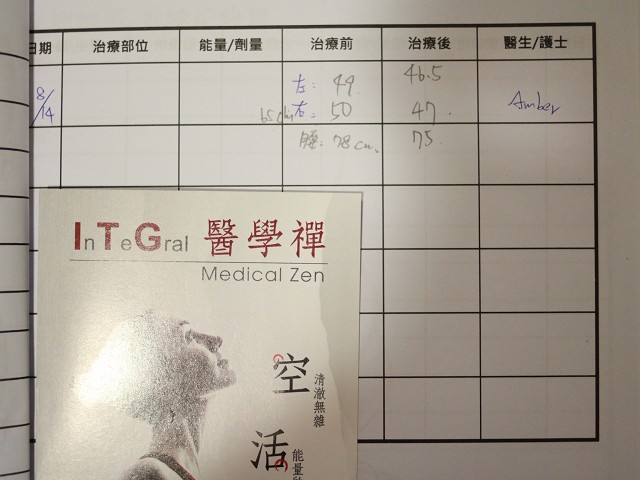 日期 治療部位 能量/劑量 治療前 治療後 醫生/護士
8/14 左: 49 46.5 Amber
右: 50 47.
腰: 78 cm. 75
InTeGral 醫學禪
Medical Zen
空 清澈無雜
活 能量